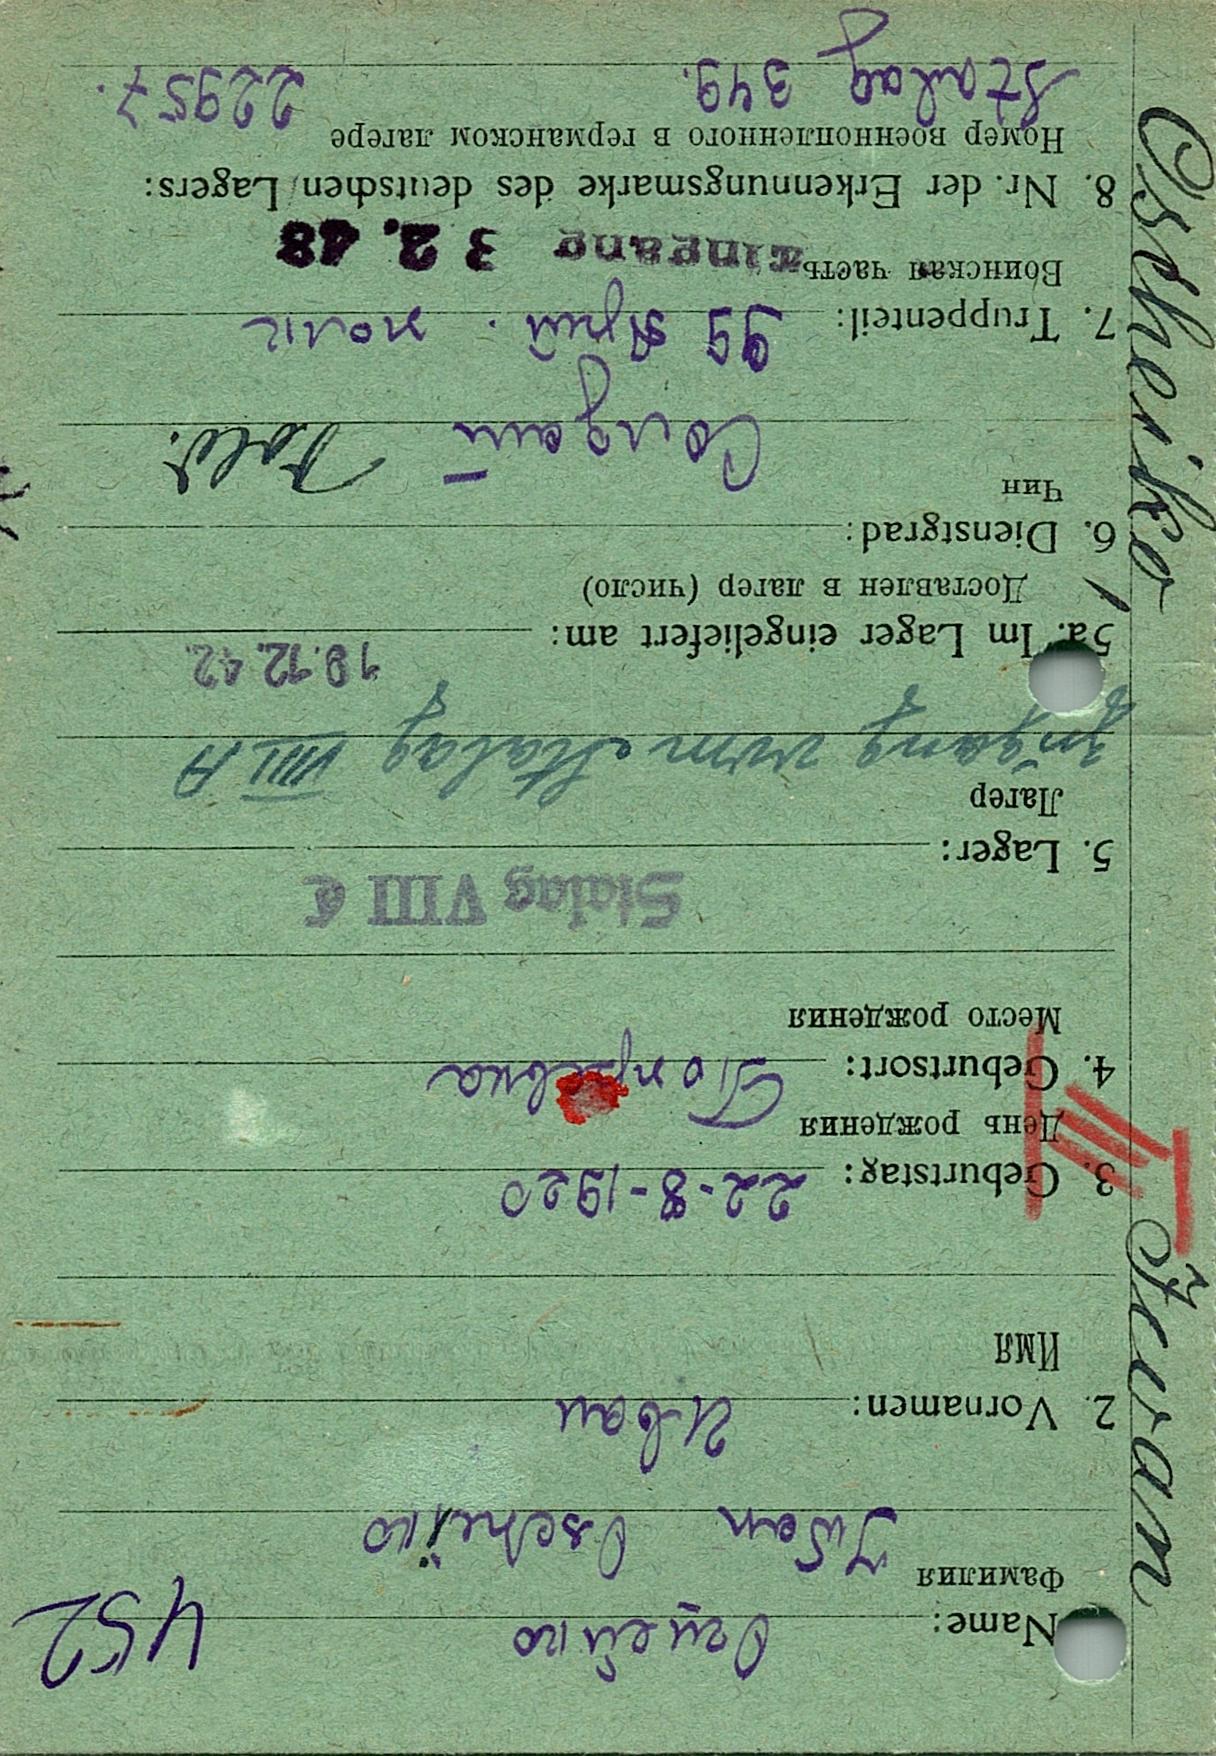 452
Name: Ощейко
Фамилия
Iwan Oscheiko
2. Vornamen: Иван
Имя
3. Geburtstag: 22-8-1920
День рождения
4. Geburtsort:
Место рождения
Stalag VIII C
5. Lager:
Лагер
Zugang vom Stalag VIII A
5a. Im Lager eingeliefert am: 19.12.42.
Доставлен в лагер (число)
6. Dienstgrad:
Чин
Солдат Sold.
7. Truppenteil: 99 Арт. полк
Воинская часть
Eingang 3 2. 43
8. Nr. der Erkennungsmarke des deutschen Lagers:
Номер военнопленного в германском лагере
Stalag 349. 22957.
Oscheiko, Iwan
III